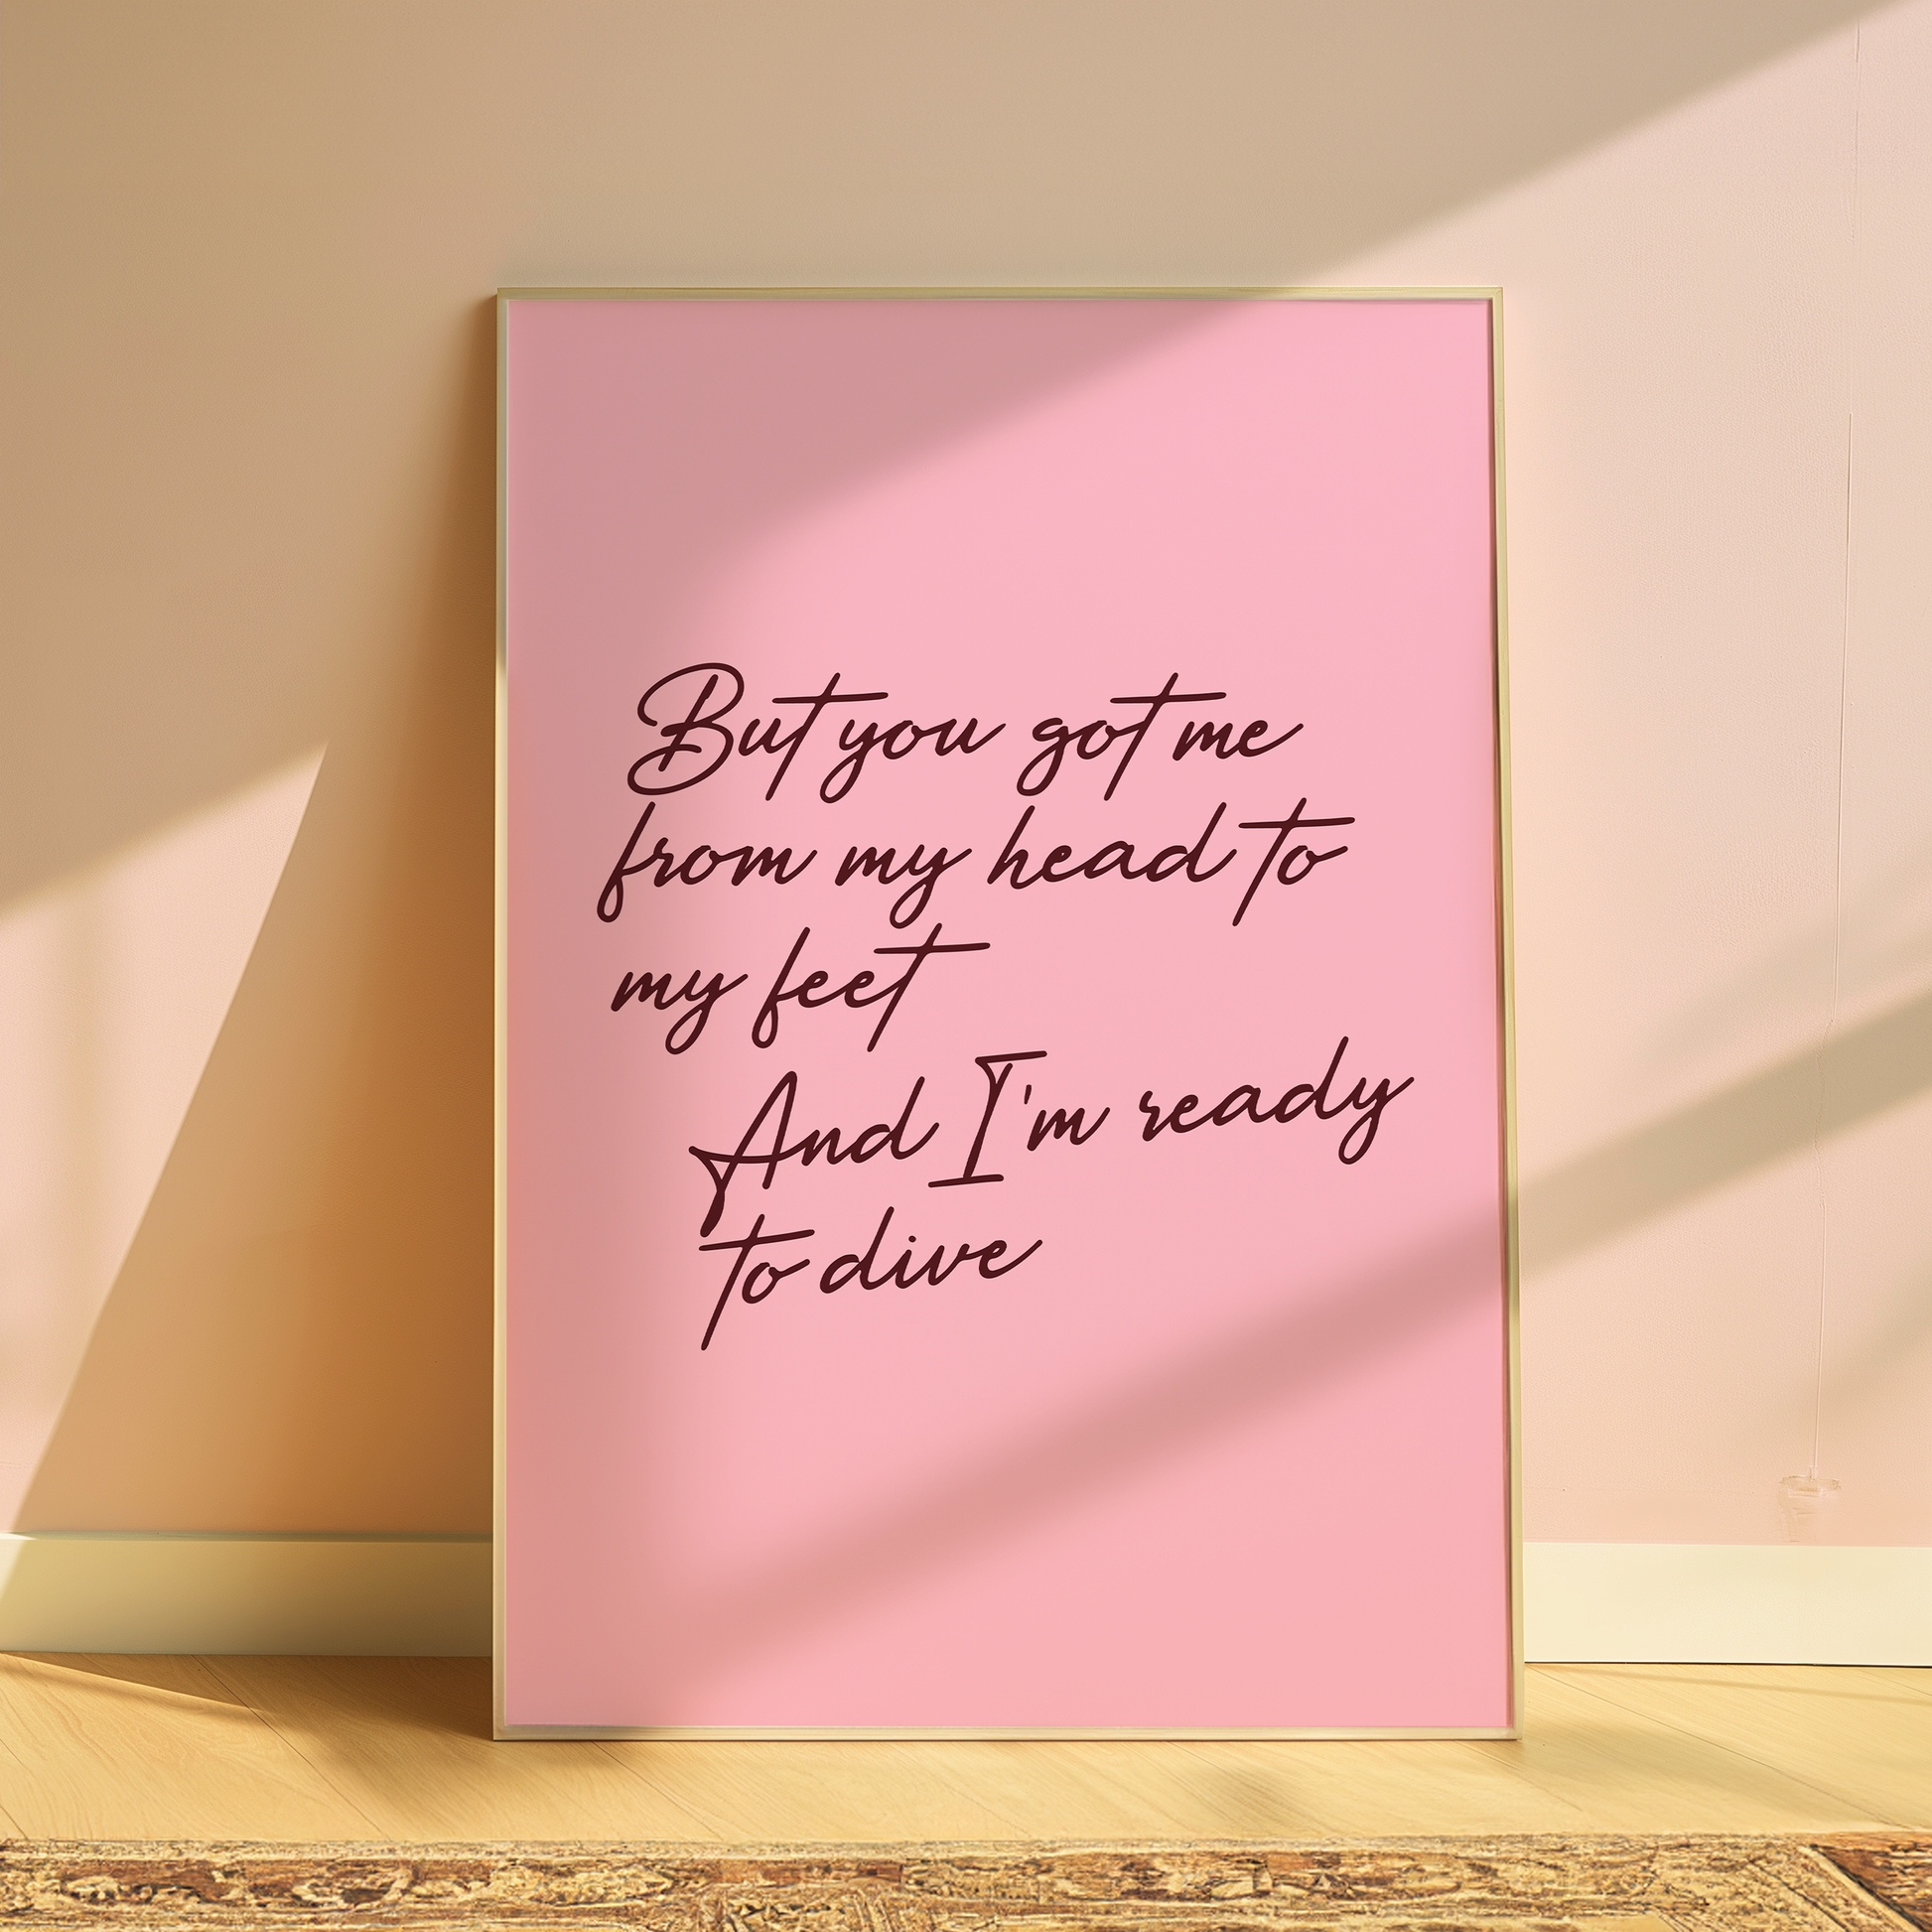 But you got me
from my head to
my feet
And I'm ready
to dive